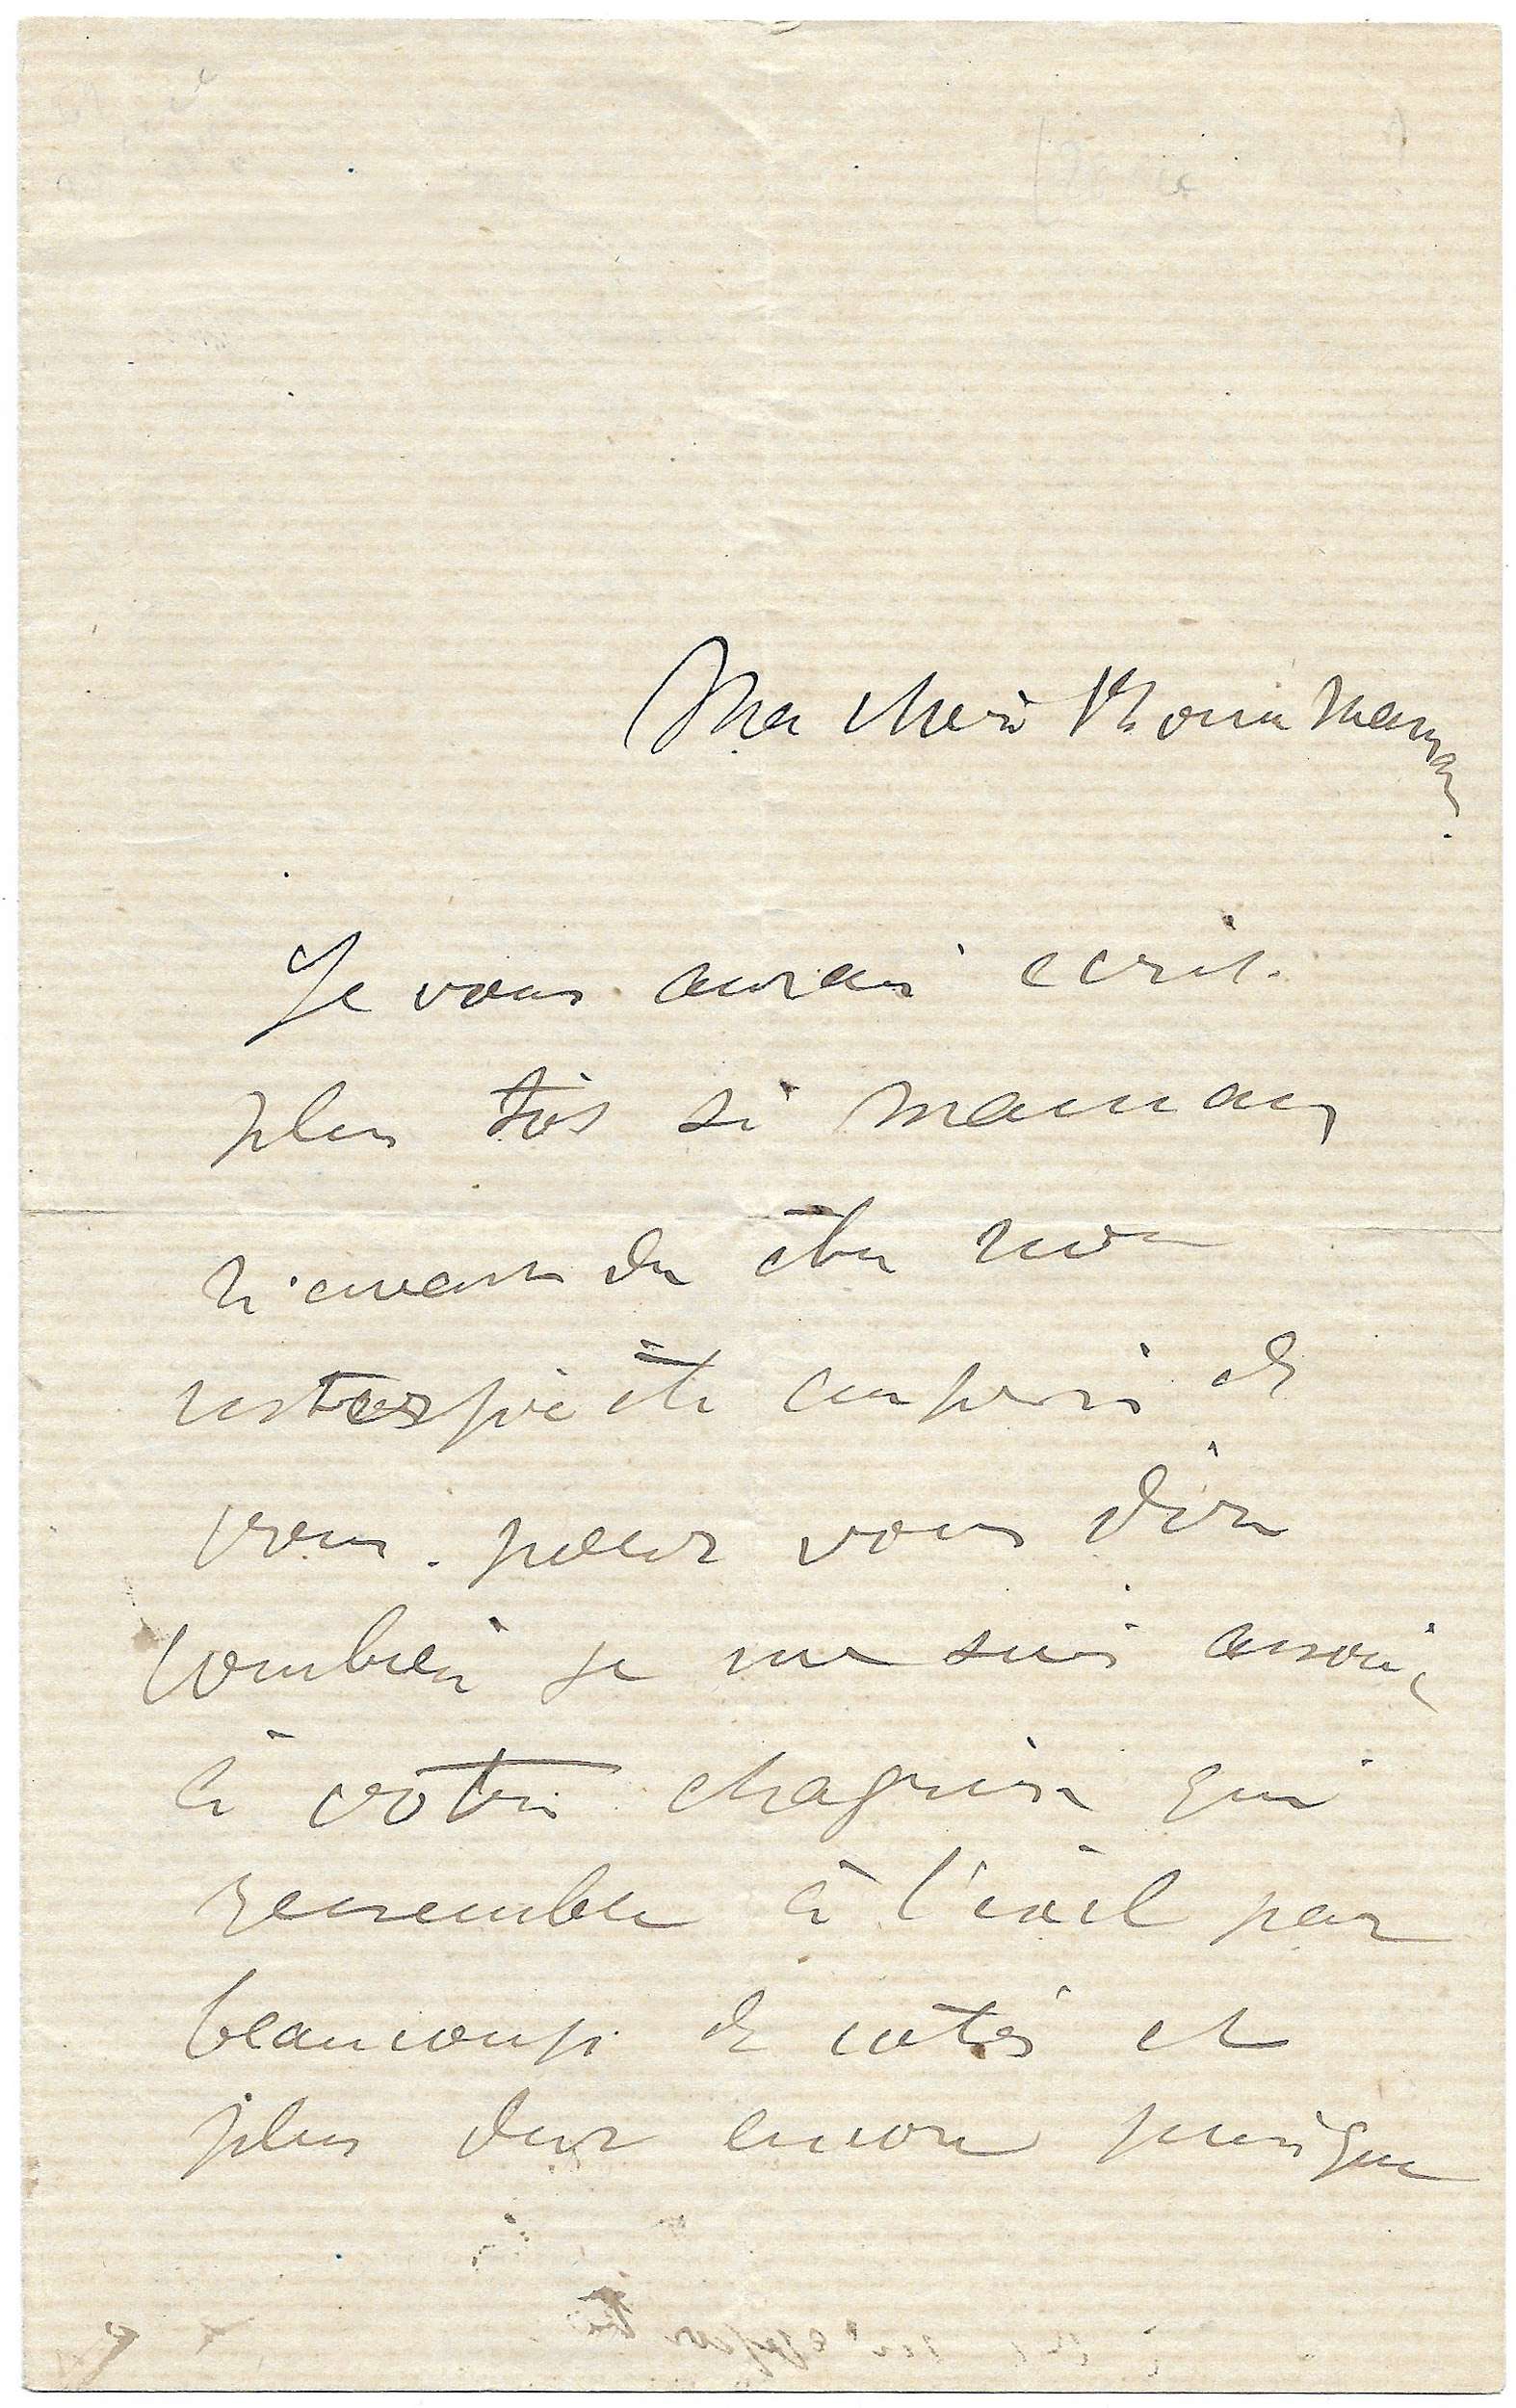 Ma chère Bonne Maman.
Je vous aurais ecrit
plus tôt si maman
n'avait du être mon
interprète auprès de
vous. pour vous dire
combien je me suis associé
à votre chagrin qui
ressemble à l'exil par
beaucoup de cotés et
plus dur encore puisque